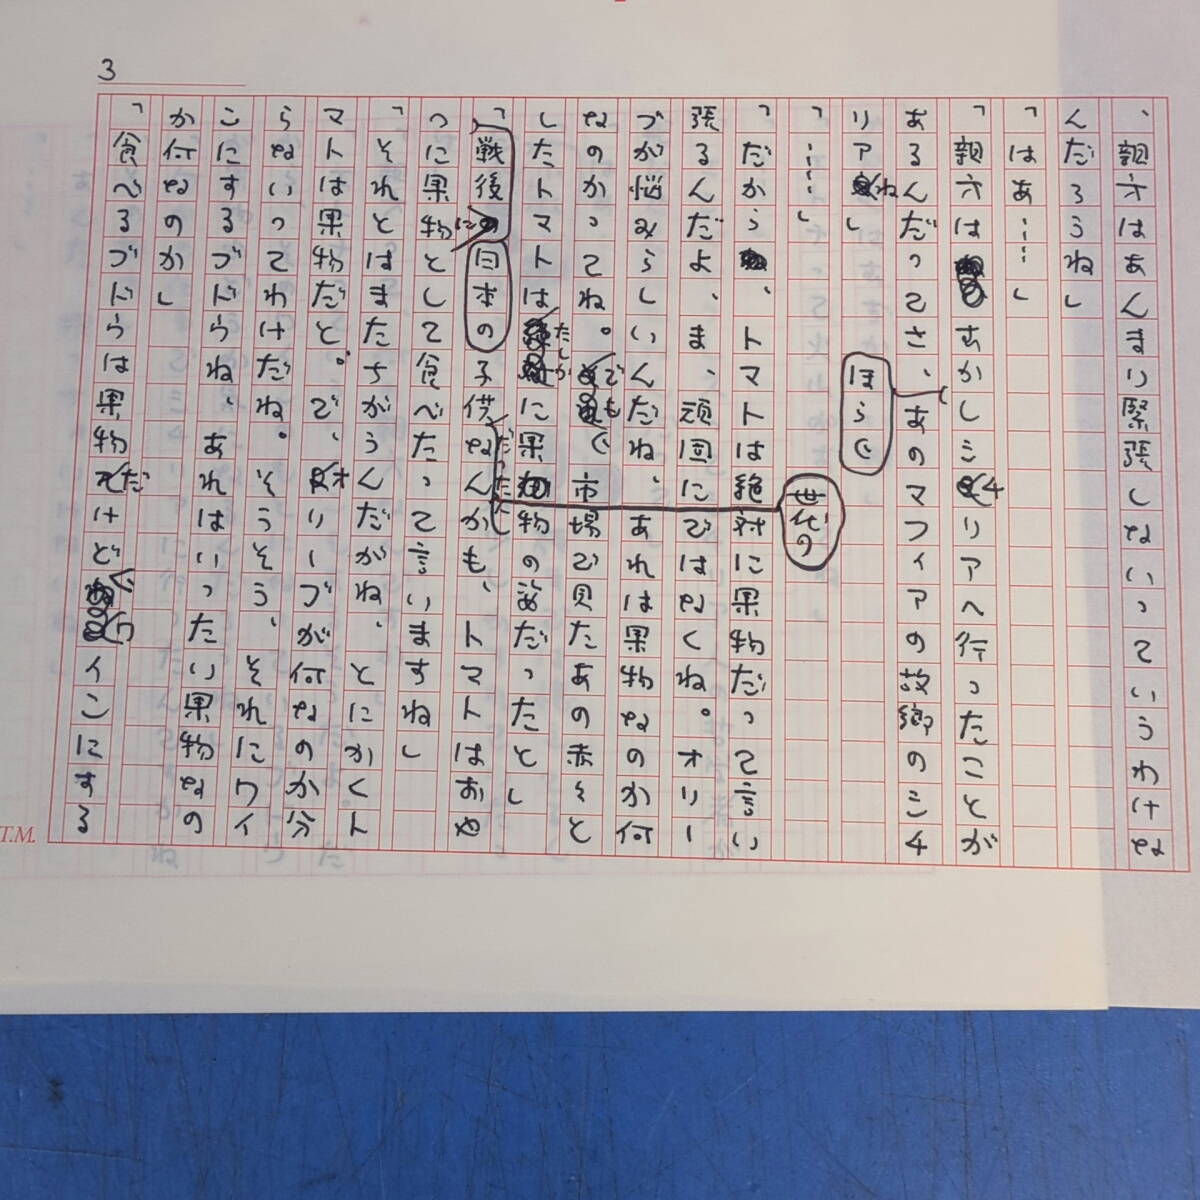 3
、親方はあんまり緊張しないっていうわけな
んだろうね」
「はあ……」
「親方はむかしシチリアへ行ったことが
あるんだってさ、ほら、あのマフィアの故郷のシチ
リアね」
「……」
「だから、トマトは絶対に果物だって言い
張るんだよ、ま、頑固にではなくね。オリー
ヴが悩みらしいんだね、あれは果物なのか何
なのかってね。でも、市場で買たあの赤々と
したトマトはたしかに果物の姿だったと」
「戦後に日本の世代の子供だったなんかも、トマトはおや
つに果物として食べたって言いますね」
「それとはまたちがうんだがね、とにかくト
マトは果物だと。で、オリーヴが何なのか分
らないってわけだね。そうそう、それにワイ
こにするブドウね、あれはいったい果物なの
か何なのか」
「食べるブドウは果物だけど、ワ
インにする
T.M.